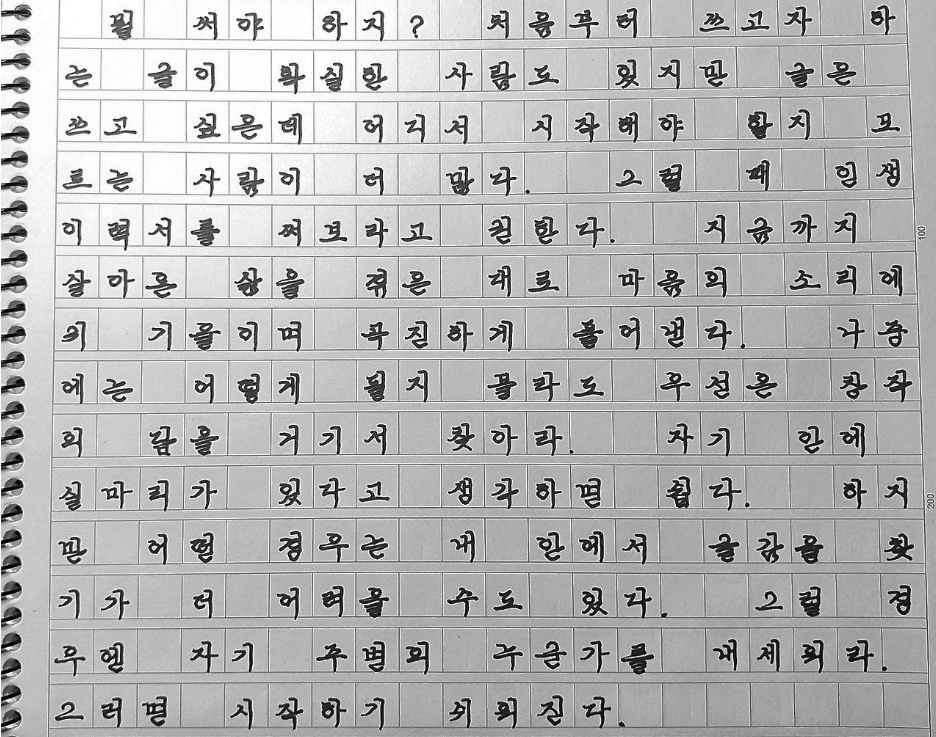 뭘 써야 하지? 처음부터 쓰고자 하
는 글이 확실한 사람도 있지만 글은
쓰고 싶은데 어디서 시작해야 할지 모
르는 사람이 더 많다. 그럴 때 인생
이력서를 써보라고 권한다. 지금까지
100
살아온 삶을 겪은 대로 마음의 소리에
귀 기울이며 곡진하게 풀어낸다. 나중
에는 어떻게 될지 몰라도 우선은 창작
의 답을 거기서 찾아라. 자기 안에
실마리가 있다고 생각하면 쉽다. 하지
200
만 어떤 경우는 내 안에서 글감을 찾
기가 더 어려울 수도 있다. 그럴 경
우엔 자기 주변의 누군가를 내세워라.
그러면 시작하기 쉬워진다.